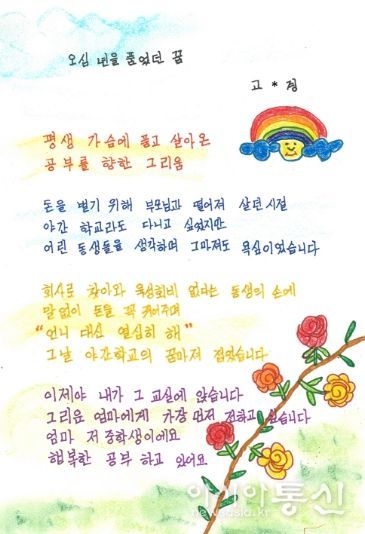 오십 년을 품었던 꿈
고 * 점
평생 가슴에 품고 살아온
공부를 향한 그리움
돈을 벌기 위해 부모님과 떨어져 살던 시절
야간 학교라도 다니고 싶었지만
어린 동생들을 생각하며 그마저도 욕심이었습니다
회사로 찾아와 육성회비 없다는 동생의 손에
말없이 돈을 꼭 쥐어주며
"언니 대신 열심히 해"
그날 야간학교의 꿈마저 접었습니다
이제야 내가 그 교실에 앉습니다
그리운 엄마에게 가장 먼저 전하고 싶습니다
엄마 저 중학생이에요
행복한 공부 하고 있어요
아시아통신
newsasia.kr